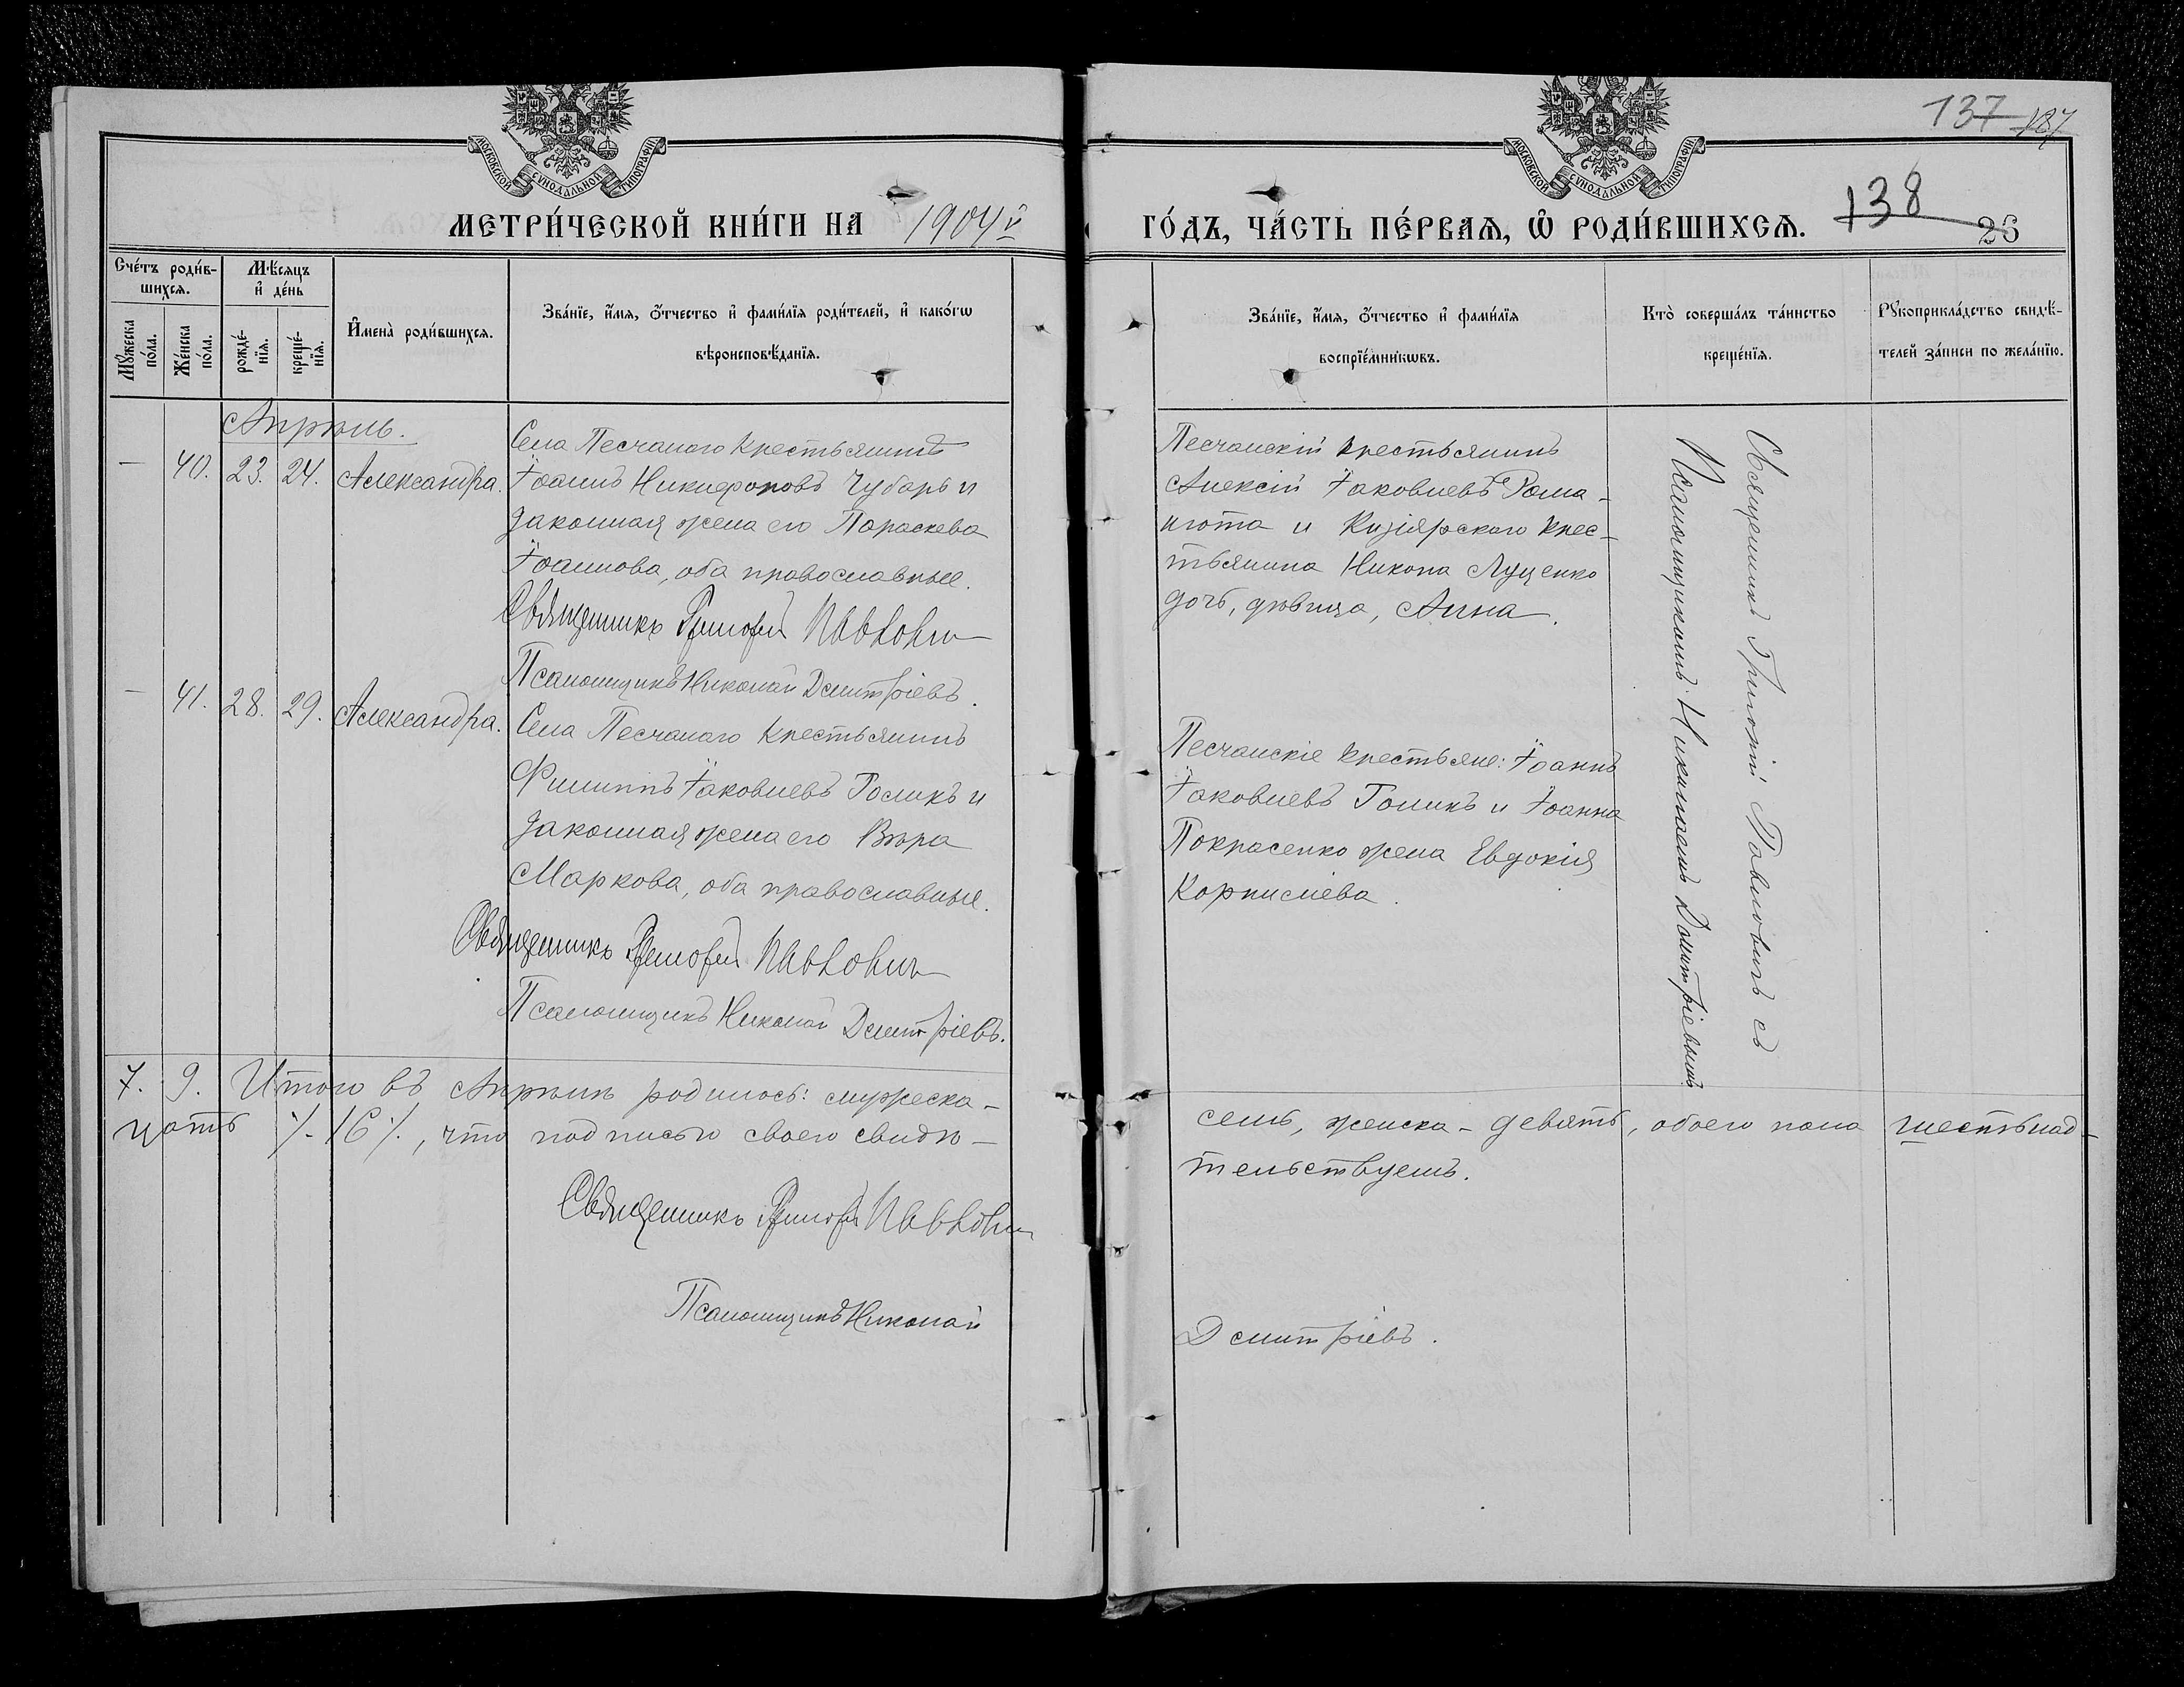 137 187
МОСКОВСКОЙ СУНОДАЛЬНОЙ ТИПОГРАФІИ
МОСКОВСКОЙ СУНОДАЛЬНОЙ ТИПОГРАФІИ
МЕТРИ́ЧЕСКОЙ КНИ́ГИ НА 1904й
ГО́ДЪ, ЧА́СТЬ ПЕ́РВАѦ, Ѡ҆ РОДИ́ВШИХСѦ. 138 26
Сче́тъ роди́в-
шихсѧ.
Мѹ́жеска
по́ла.
Же́нска
по́ла.
Мѣ́сѧцъ
и҆ де́нь
рожде́-
нїѧ.
креще́-
нїѧ.
И҆мена̀ роди́вшихсѧ.
Зва́нїе, и҆́мѧ, ѻ҆́тчество и҆ фами́лїѧ роди́телей, и҆ како́гѡ
вѣроисповѣ́данїѧ.
Зва́нїе, и҆́мѧ, ѻ҆́тчество и҆ фами́лїѧ
воспрїе́мникѡвъ.
Кто̀ соверша́лъ та́инство
креще́нїѧ.
Рѹкоприкла́дство свидѣ́-
телей за́писи по жела́нїю.
Апрѣль.
— 40. 23. 24. Александра.
Села Песчаного крестьянинъ
Іоаннъ Никифоровъ Чубарь и
законная жена его Параскева
Іоаннова, оба православные.
Священникъ Григорій Павловичъ
Псаломщикъ Николай Дмитріевъ.
Песчанскій крестьянинъ
Алексій Іаковлевъ Рома-
нюта и Кизіярского крес-
тьянина Никона Луценко
дочь, дѣвица, Анна.
— 41. 28. 29. Александра.
Села Песчаного крестьянинъ
Филиппъ Іаковлевъ Голикъ и
законная жена его Вѣра
Маркова, оба православные.
Священникъ Григорій Павловичъ
Псаломщикъ Николай Дмитріевъ.
Песчанскіе крестьяне: Іоаннъ
Іаковлевъ Голикъ и Іоанна
Покрасенко жена Евдокія
Корнилiева.
Священникъ Григорій Павловичъ съ
Псаломщикомъ Николаемъ Дмитріевымъ
7. 9. Итого въ Апрѣлѣ родилось: мужеска - семь, женска - девять, обоего пола шестьнад-
цать ·/. 16 ·/., что подписью своею свидѣ-тельствуемъ.
Священникъ Григорій Павловичъ
Псаломщикъ Николай Дмитріевъ.